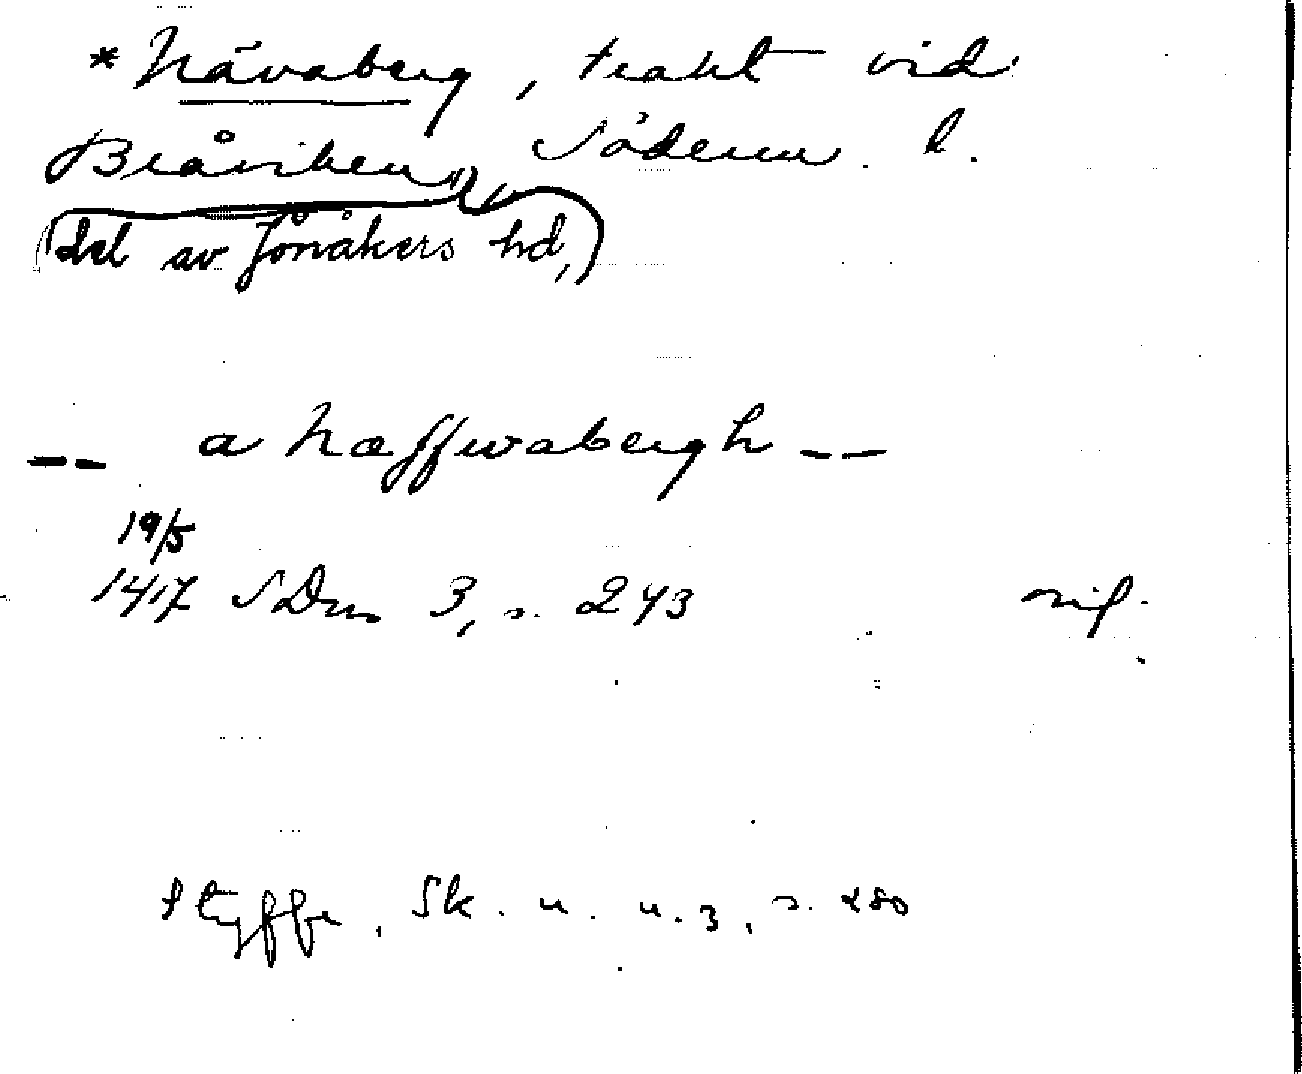 * Nävaberg, trakt vid
Bråviken, Söderm. l.
(del av Jönåkers hd,)
-- a Næffwabergh --
19/5
1417 SDns 3, s. 243 orig.
Styffe, Sk. u. u. 3, s. 280